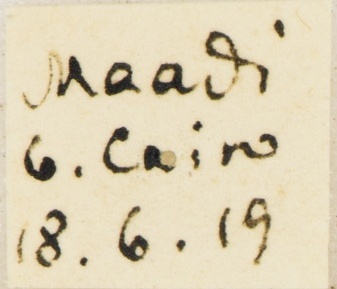 Maadi
6. Cairo
18.6.19